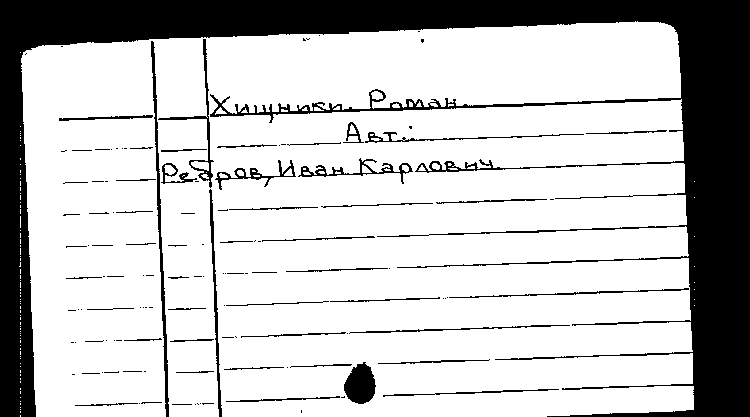 Хищники. Роман.
Авт.:
Ребров, Иван Карлович